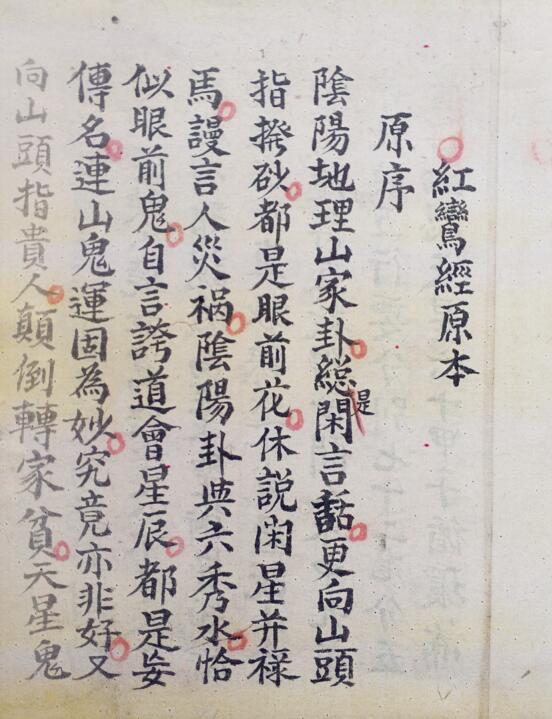 紅鸞經原本
原序
陰陽地理山家卦緫是閑言話更向山頭
指撥砂都是眼前花休說閑星并祿
馬謾言人災禍陰陽卦與六秀水恰
似眼前鬼自言誇道會星辰都是妄
傳名連山鬼運固為妙究竟亦非好又
向山頭指貴人顛倒轉家貧天星鬼